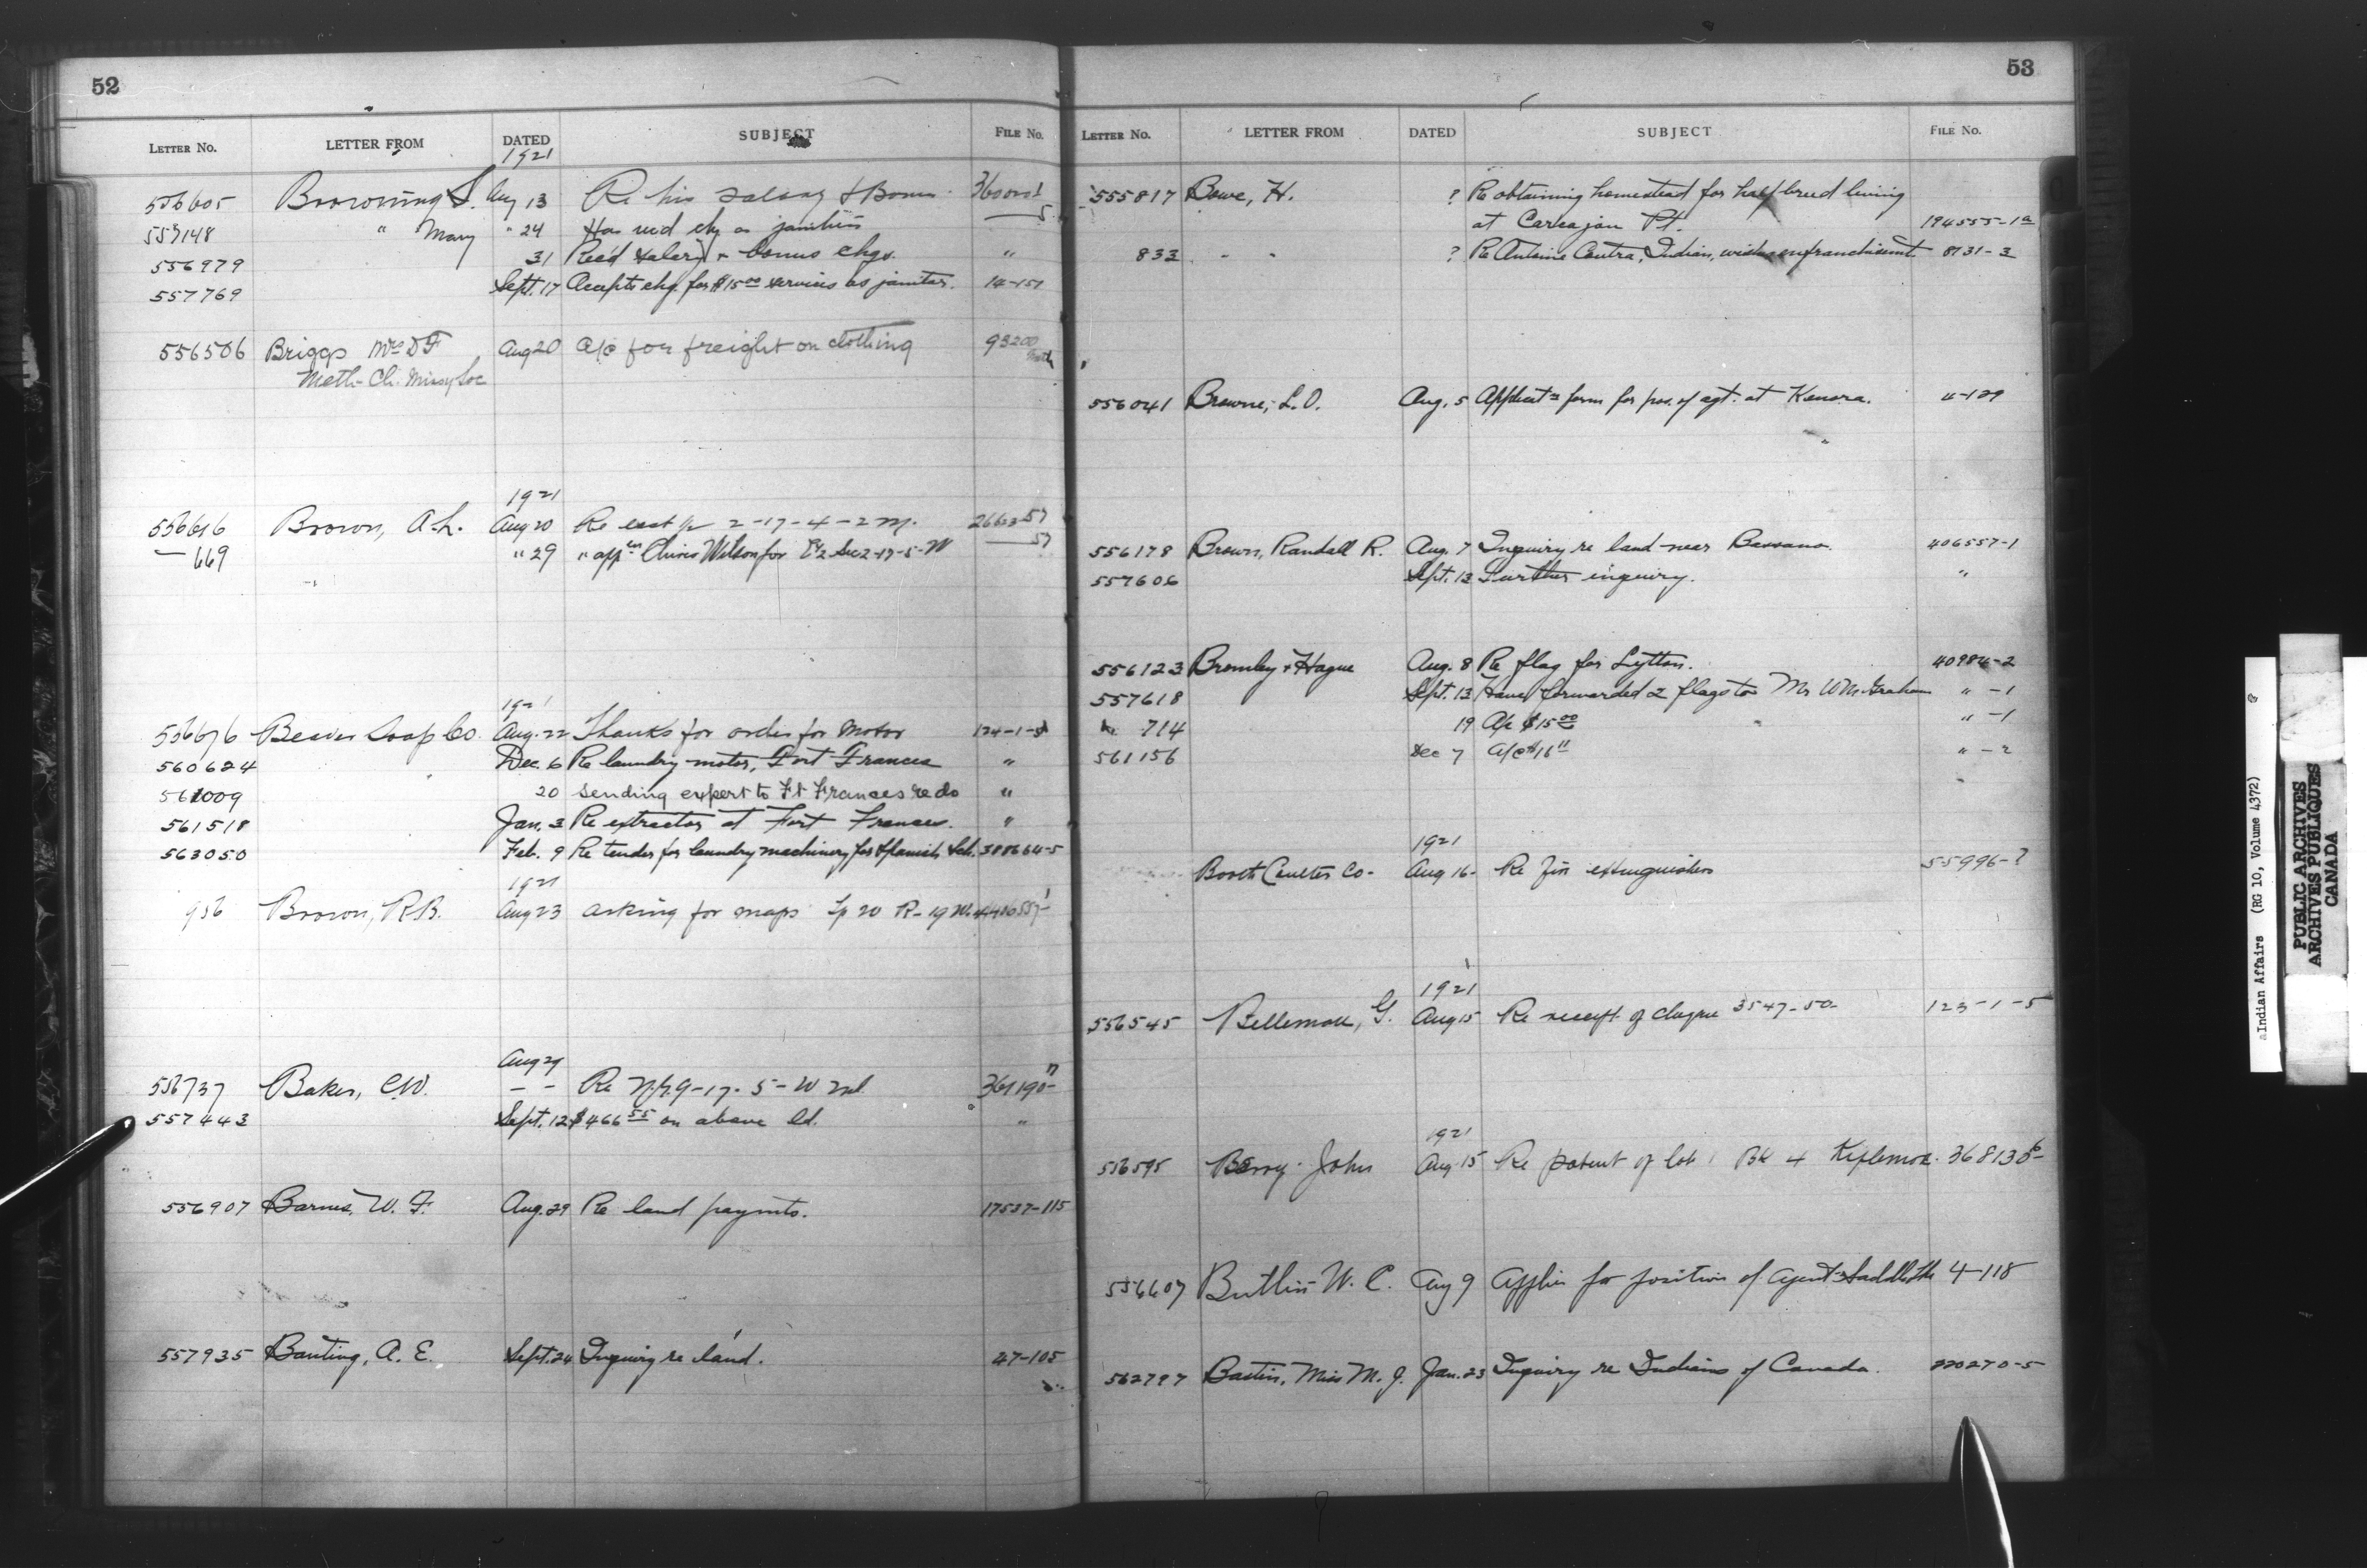 52
LETTER No. LETTER FROM DATED SUBJECT FILE No.
1921
556605 Browning S. Aug 13 Re his salary & Bonus
557148 " Mary " 24 Has rec'd chq as
556979 31 Rec'd salary + bonus chqs. "
557769 Sept. 17 Accepts chq. for $15.00 services as janitor. 14-151
556506 Briggs Mrs D F Aug 20 a/c for freight on clothing 93200
Meth. Ch. Missy Soc
1921
556616 Brown, A.L. Aug 20 Re 2-17-4-2 M.
— 669 " 29 " appn Wilson for E½ Sec 2-17-5-W — 57
1921
556676 Beaver Soap Co. Aug. 22 Thanks for order for Motor 124-1-5
560624 Dec. 6 Re laundry motor, Fort Frances "
561009 20 Sending expert to Ft Frances re do "
561518 Jan. 3 Re extractor at Fort Frances. "
563050 Feb. 9 Re tender for laundry machinery for Spanish Sch. 388664-5
1921
956 Brown, R.B. Aug 23 asking for maps Tp 20 R-19 W. 4 406557-1
Aug 29
556737 Baker, C.W. — — Re 9-17-5-W 2nd
557443 Sept. 12 $466.55 on above ld. "
556907 Barnes, W. F. Aug. 29 Re land paymts. 17537-115
557935 Banting, A. E. Sept. 24 Inquiry re land. 47-105
53
LETTER No. LETTER FROM DATED SUBJECT FILE No.
555817 Bowe, H. ? Re obtaining homestead for half breed living
at Carcajou Pt. 194555-1a
833 " " ? Re Antoine Indian, wishes enfranchisemt. 8131-3
556041 Browne, L.O. Aug. 5 Applicatn form for pos. of agt. at Kenora. 4-129
556178 Brown, Randall R. Aug. 7 Inquiry re land near Bassano. 406557-1
557606 Sept. 13 Further inquiry. "
556123 Bromley & Hague Aug. 8 Re flag for Lytton. 40984-2
557618 Sept. 13 Have forwarded 2 flags to Mr W M Graham " -1
714 19 A/c $15.00 " -1
561156 Dec 7 A/c $16 " -2
1921
Booth Coulter Co- Aug 16- Re fire extinguishers 55996-?
1921
556545 Bellemare, G. Aug 15 Re receipt of cheque 3547-50- 123-1-5
1921
556595 Berry John Aug 15 Re patent of lot 1 Bk 4
556607 W. C. Aug 9 Applies for position of Agent 4-118
562797 Bastin, Miss M. J. Jan. 23 Inquiry re Indians of Canada. 220270-5
Indian Affairs (RG 10, Volume 4372)
PUBLIC ARCHIVES
ARCHIVES PUBLIQUES
CANADA